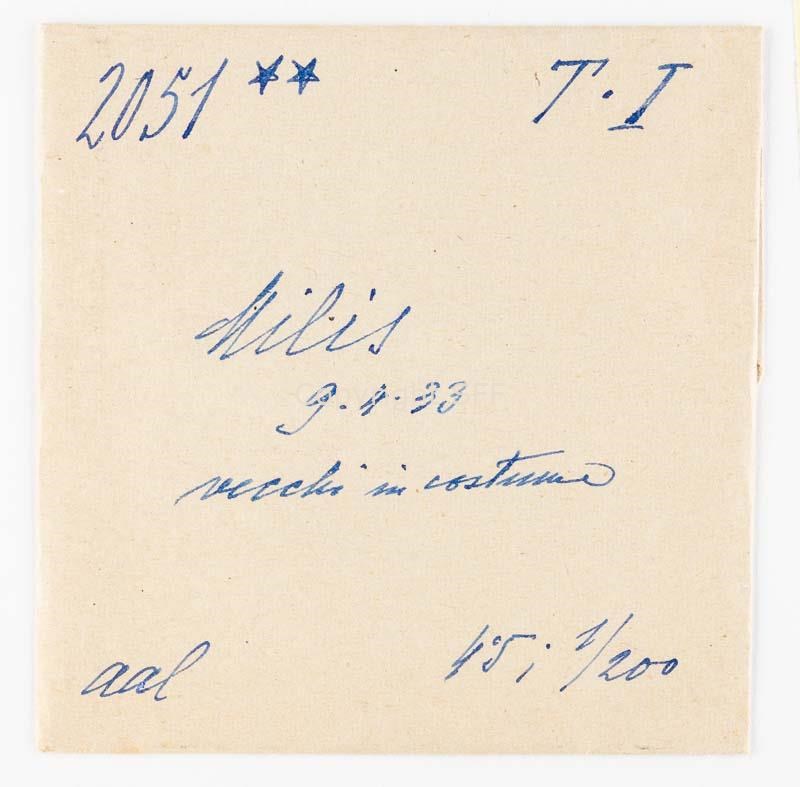 2051 ** T. I
Milis
9.4.33
vecchi in costume
aal 4'5; 1/200